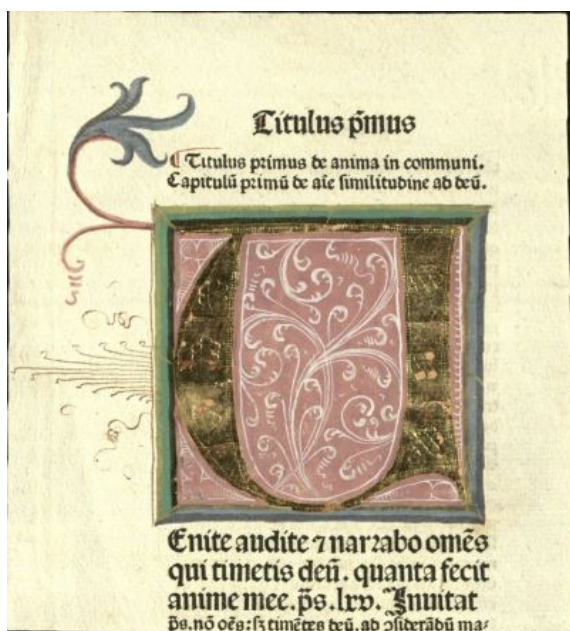 Titulus p̄mus
Titulus primus de anima in communi.
Capitulū primū de aīe similitudine ad deū.
U
Enite audite ⁊ narrabo omēs
qui timetis deū. quanta fecit
anime mee. p̄s. lxv. Inuitat
p̄s. nō oēs: sꝫ timētes deū. ad ↄsiderādū ma⸗